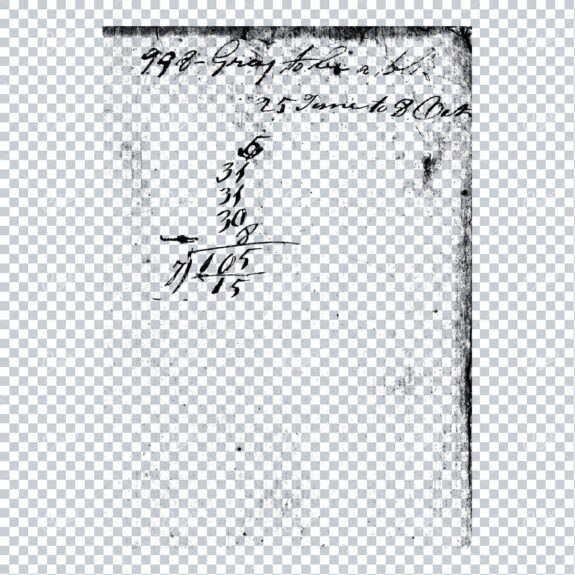 998 - Grey to
25 June to 8 Oct
5
31
31
30
8
7)105
15